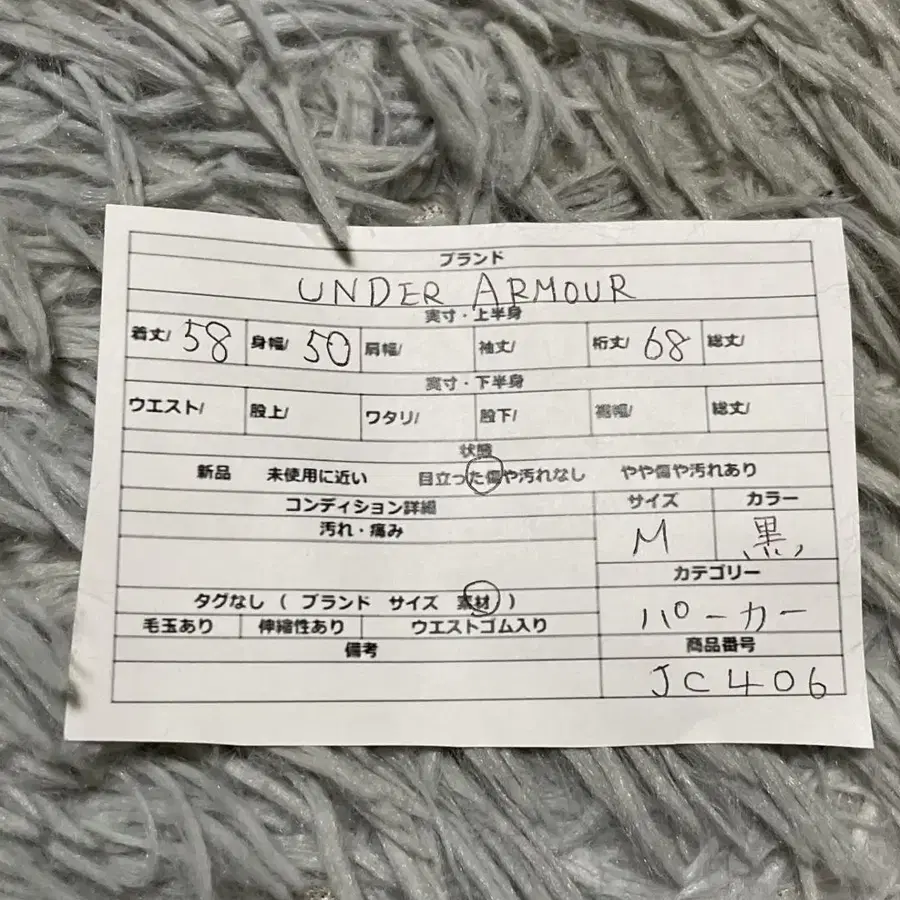 ブランド
UNDER ARMOUR
実寸・上半身
着丈/ 58 身幅/ 50 肩幅/ 袖丈/ 裄丈/ 68 総丈/
実寸・下半身
ウエスト/ 股上/ ワタリ/ 股下/ 裾幅/ 総丈/
状態
新品 未使用に近い 目立った傷や汚れなし やや傷や汚れあり
コンディション詳細 サイズ カラー
汚れ・痛み
M 黒
カテゴリー
タグなし ( ブランド サイズ 素材 ) パーカー
毛玉あり 伸縮性あり ウエストゴム入り
備考 商品番号
JC406